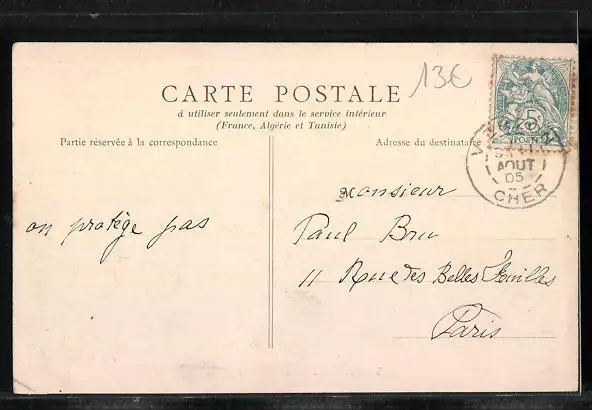 13€
CARTE POSTALE
à utiliser seulement dans le service intérieur
(France, Algérie et Tunisie)
Partie réservée à la correspondance
Adresse du destinataire
5c
POSTES
VIERZON
AOUT
05
CHER
on protège pas
Monsieur
Paul Bru
11 Rue des Belles Feuilles
Paris